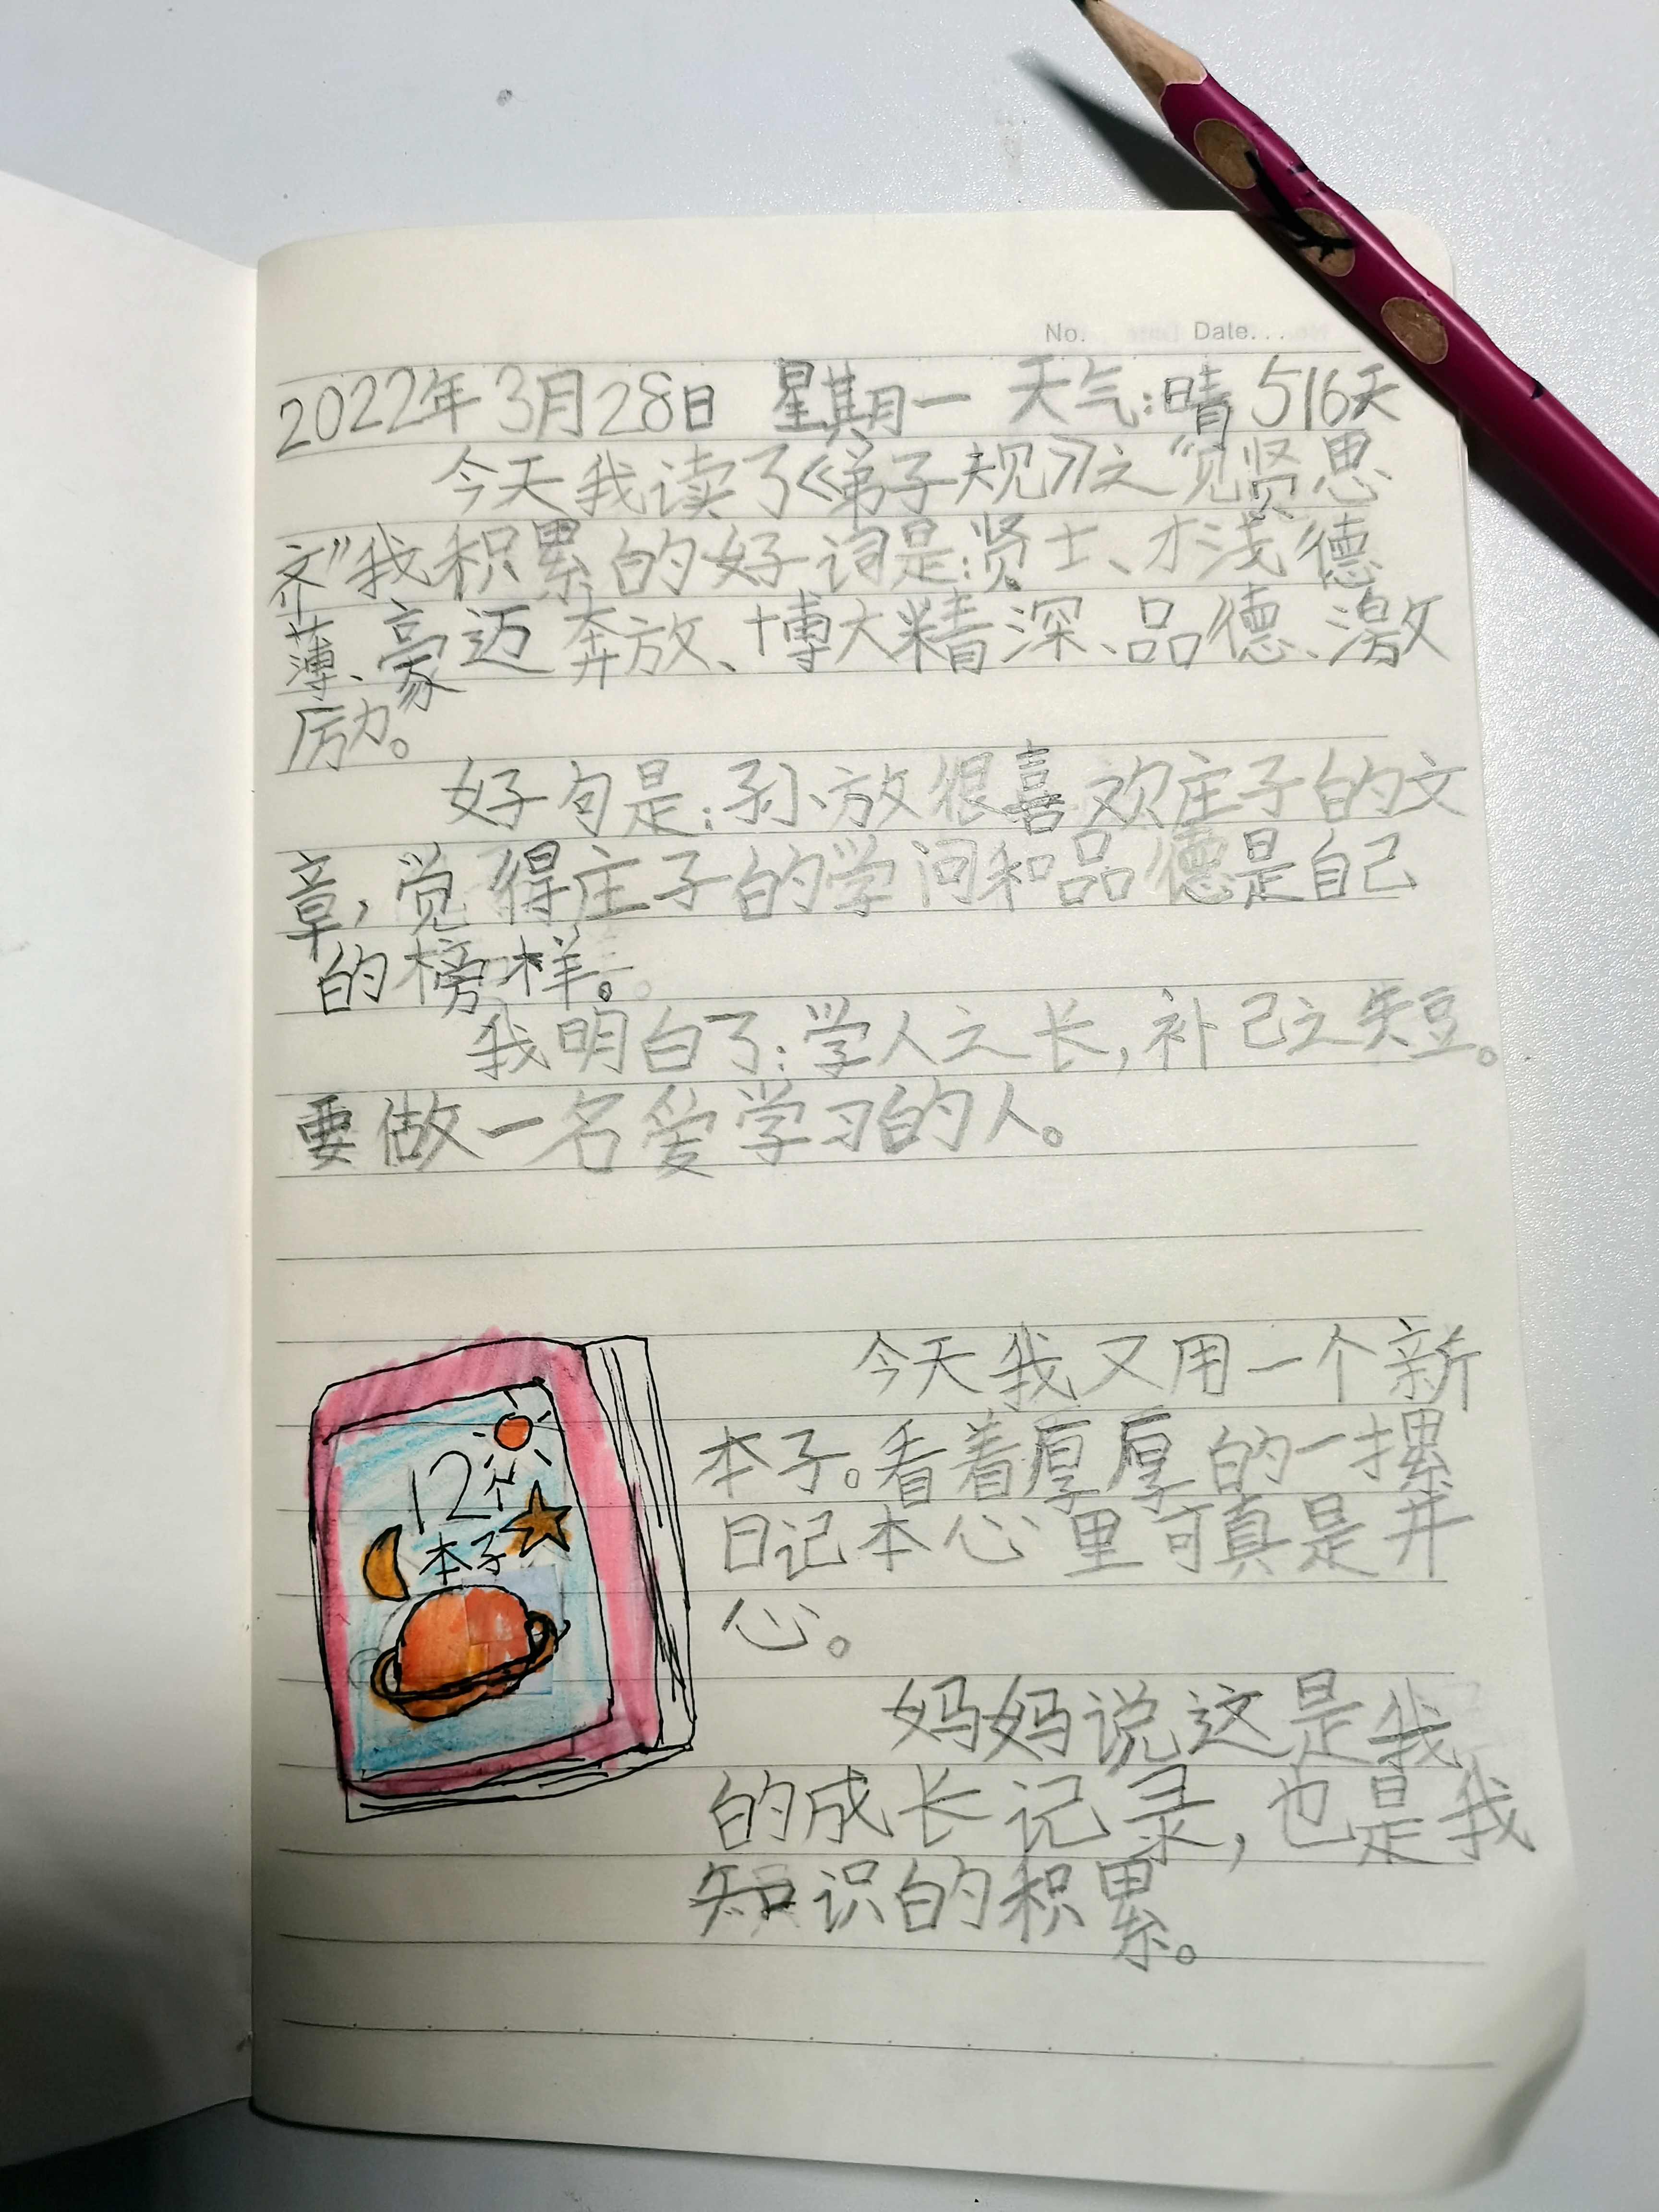 No. Date...
2022年3月28日 星期一 天气:晴 516天
今天我读了《弟子规》之“见贤思
齐”我积累的好词是:贤士、才浅德
薄、豪迈奔放、博大精深、品德、激
厉力。
好句是:孙放很喜欢庄子的文
章,觉得庄子的学问和品德是自己
的榜样。
我明白了:学人之长,补己之短。
要做一名爱学习的人。
今天我又用一个新
本子。看着厚厚的一摞
日记本心里可真是开
心。
妈妈说这是我
的成长记录,也是我
知识的积累。
12个
本子